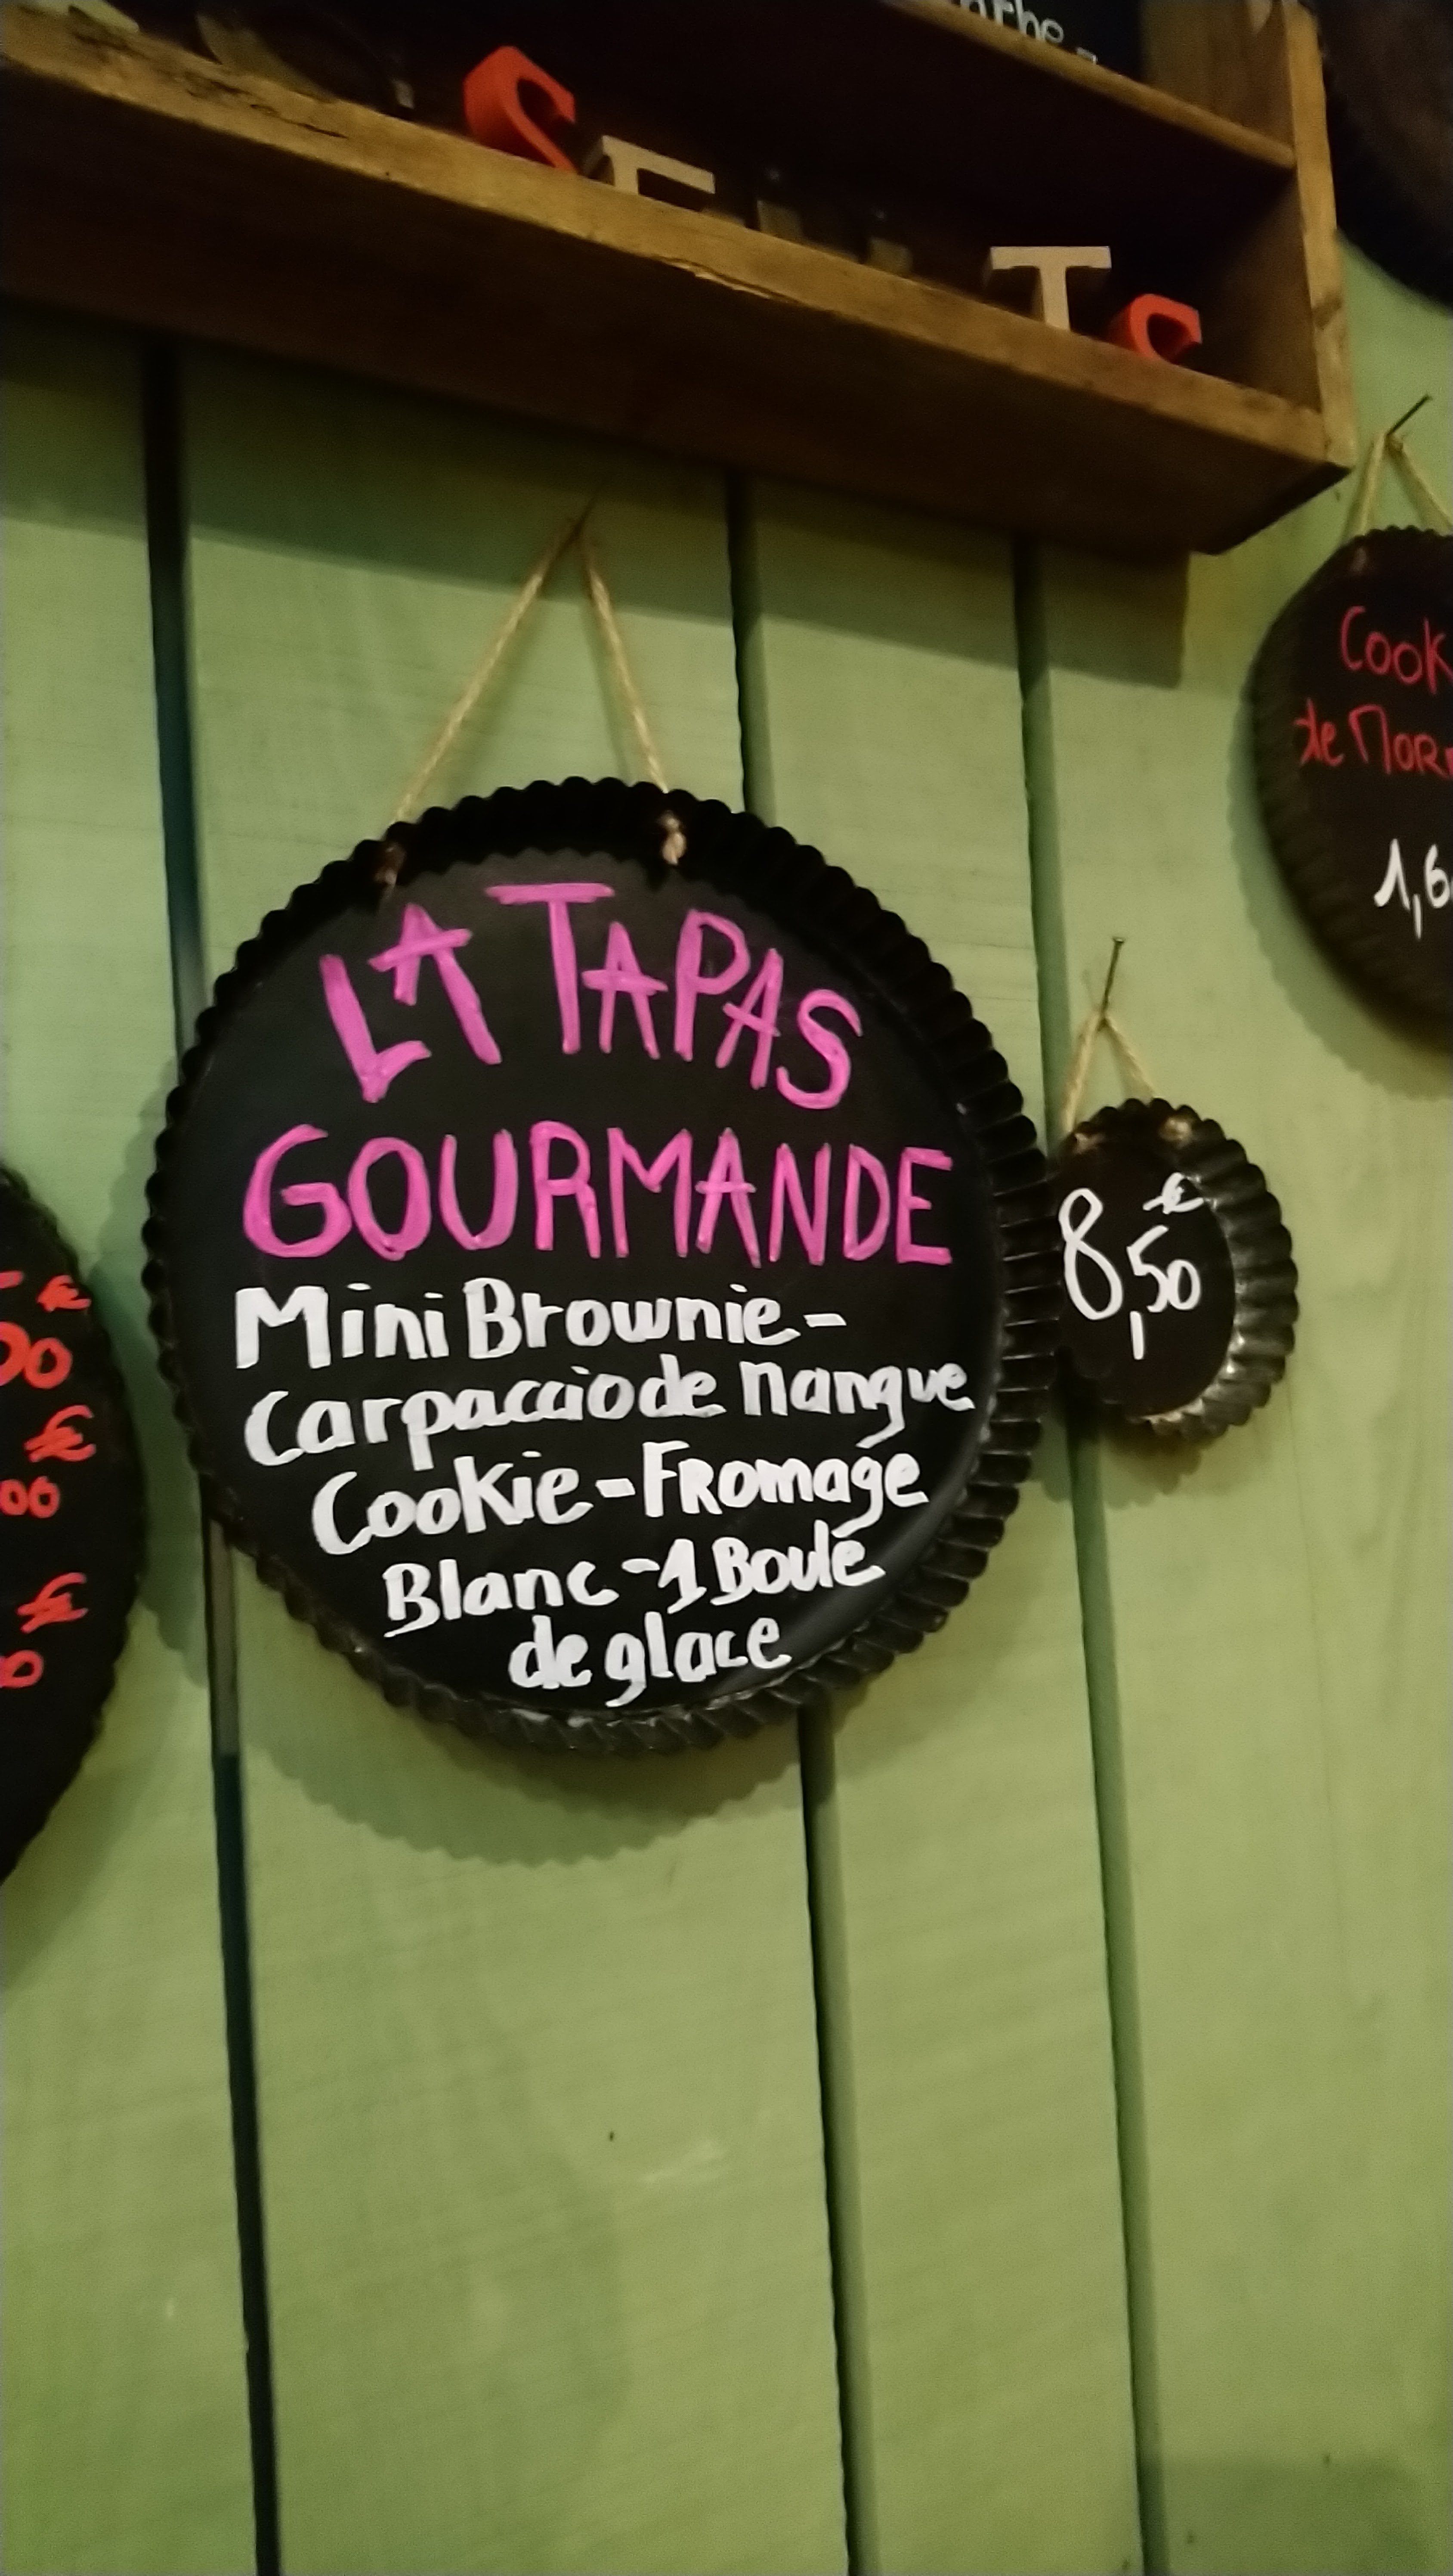 LA TAPAS
GOURMANDE
Mini Brownie-
Carpaccio de Mangue
Cookie-Fromage
Blanc-1 Boule
de glace
8,50 €
de
€
€
00
€